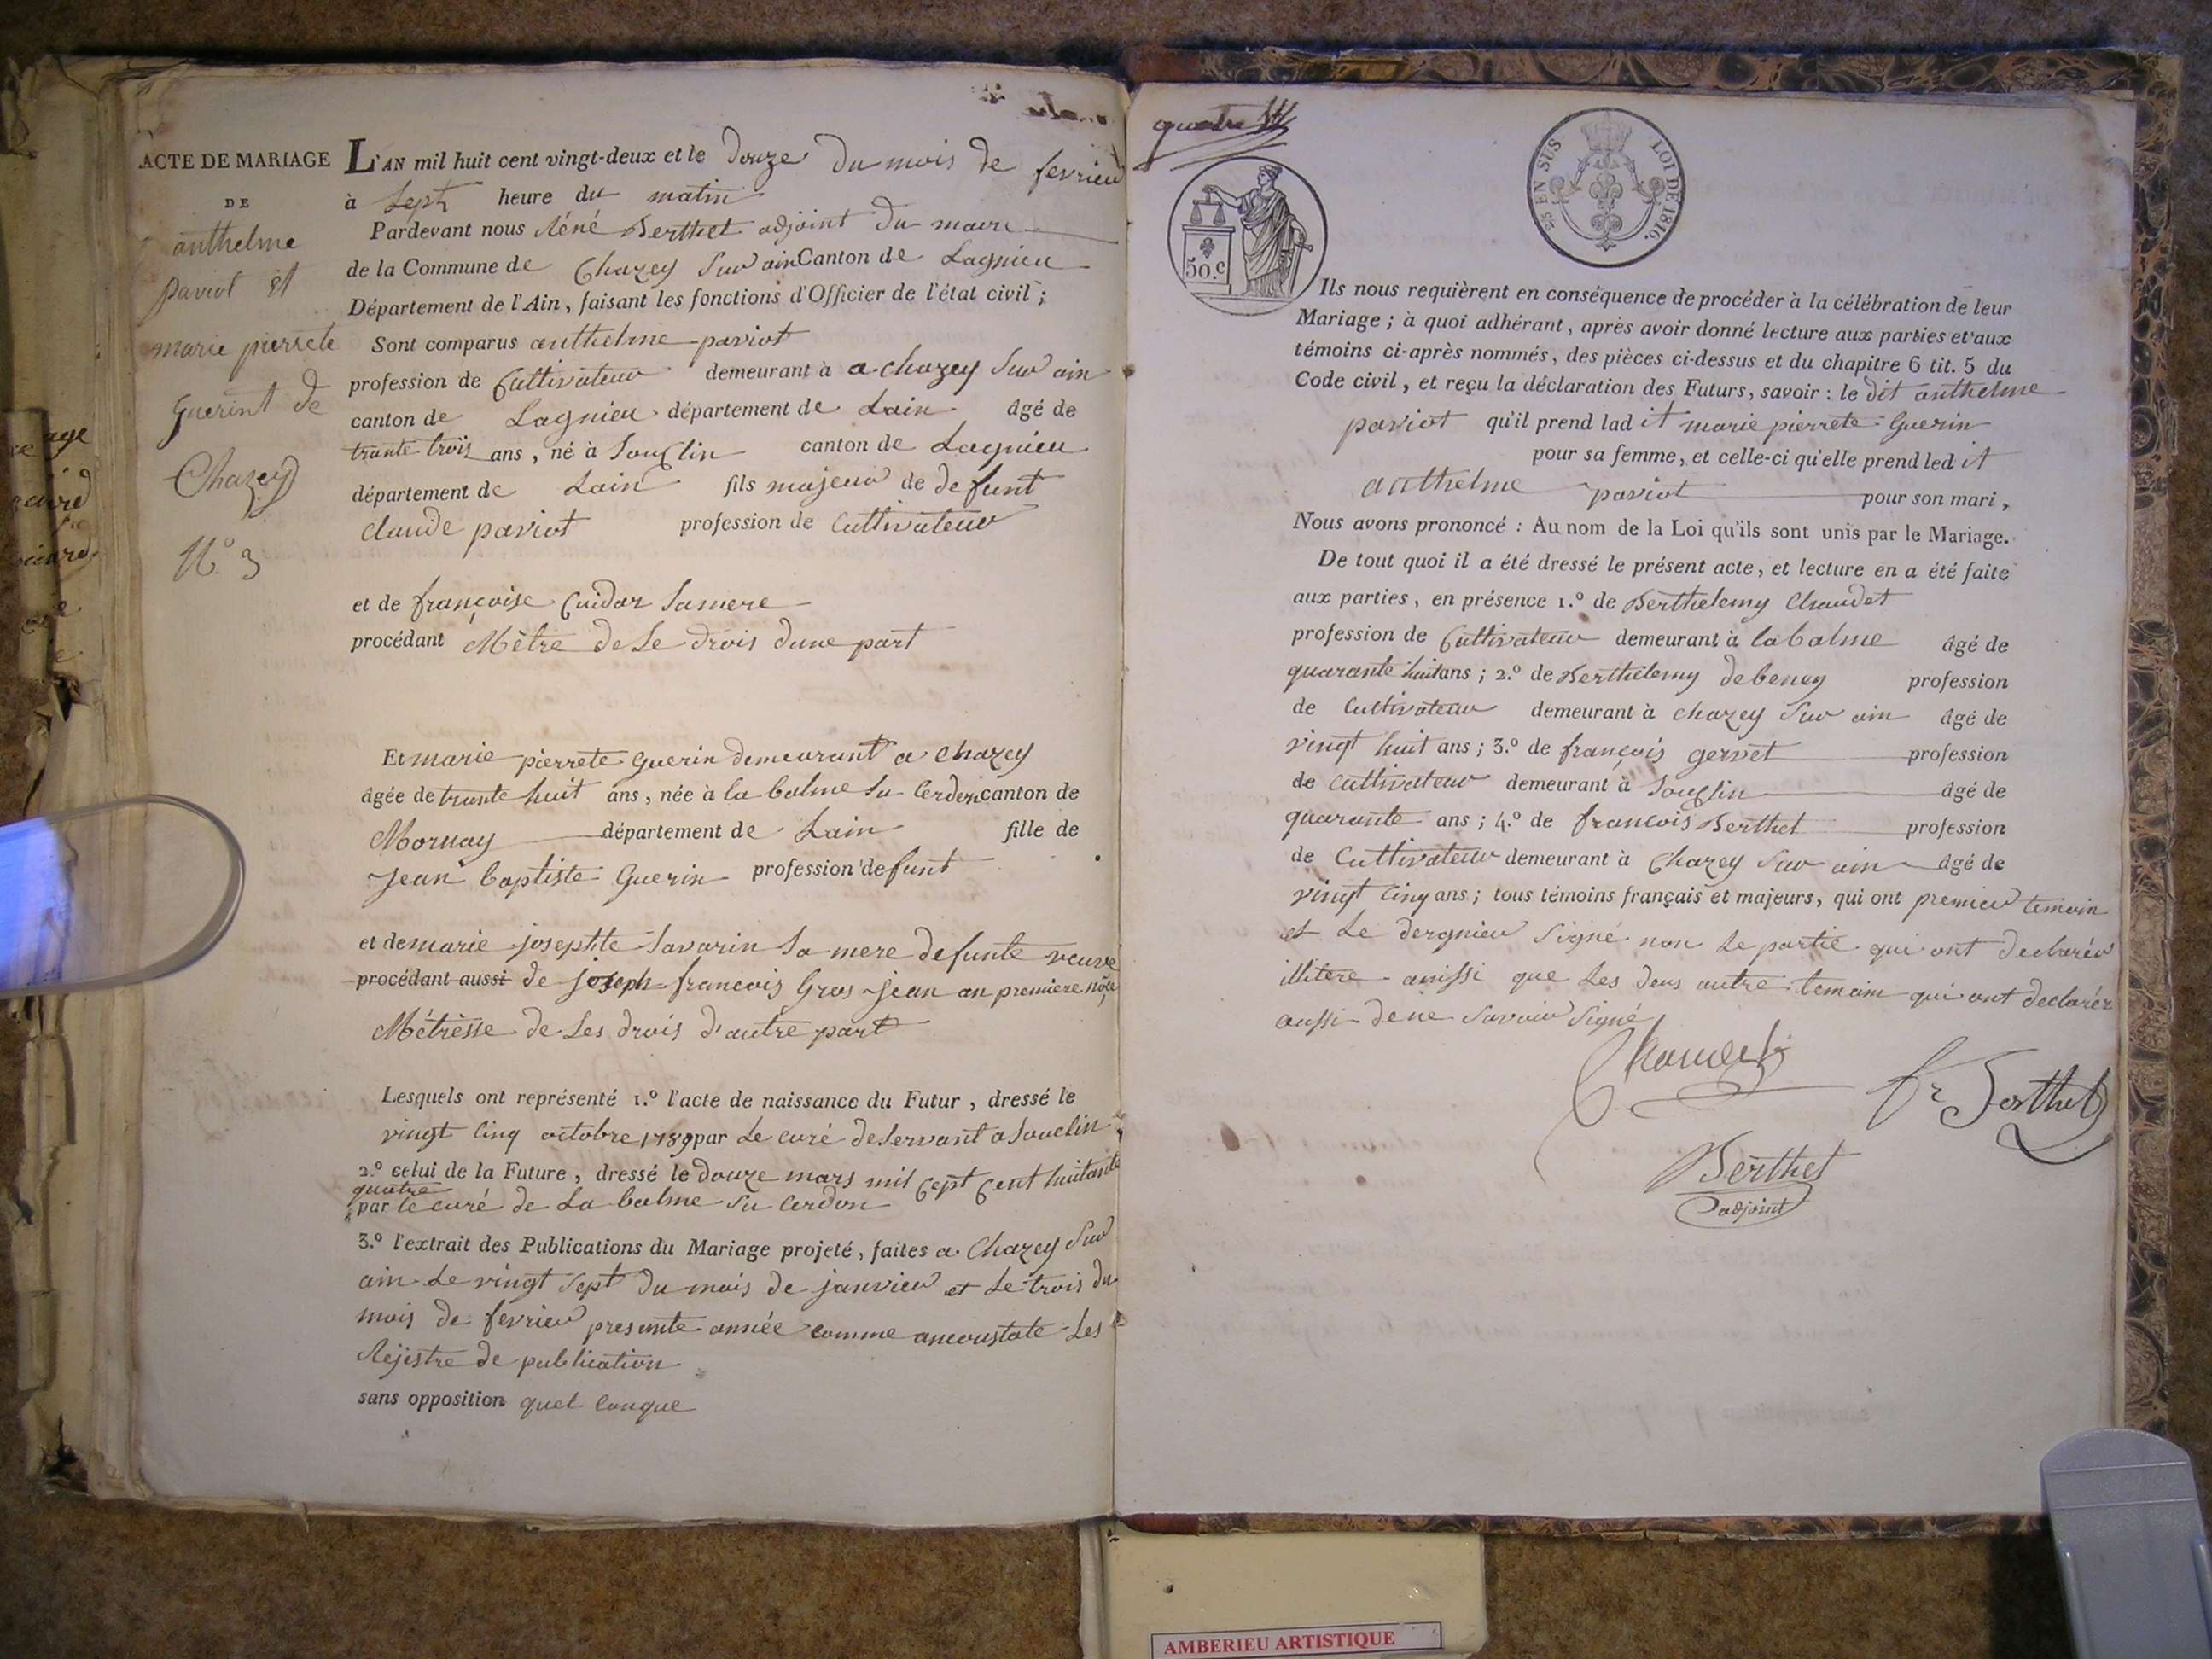 ACTE DE MARIAGE
DE
anthelme
paviot et
marie pierrete
Guerint de
Chazey
N.º 3
L'AN mil huit cent vingt-deux et le douze du mois de fevrier
à Sept heure du matin
Pardevant nous Réné Berthet adjoint du maire
de la Commune de Chazey Sur ain Canton de Lagnieu
Département de l'Ain, faisant les fonctions d'Officier de l'état civil;
Sont comparus anthelme paviot
profession de Cultivateur demeurant à a chazey Sur ain
canton de Lagnieu département de Lain âgé de
trante trois ans, né à Souclin canton de Lagnieu
département de Lain fils majeur de defunt
claude paviot profession de Cultivateur
et de françoise Cuidar Samere
procédant Mêtre de Se drois dune part
Et marie pierrete Guerin demeurant a chazey
âgée de trante huit ans, née à la balme Su Cerdon canton de
Mornay département de Lain fille de
jean baptiste Guerin profession defunt
et de marie josephte Savarin Sa mere defunte veuve
procédant aussi de joseph francois Gros jean an premiere nôce
Métrèsse de Ses drois d'autre part
Lesquels ont représenté 1.º l'acte de naissance du Futur, dressé le
vingt Cinq octobre 1789 par Le curé deservant a Souclin
2.º celui de la Future, dressé le douze mars mil Sept Cent huitante
quatre
par le curé de La balme Su Cerdon
3.º l'extrait des Publications du Mariage projeté, faites a Chazey Sur
ain Le vingt Sept du mois de janvier et Le trois du
mois de fevrier presente année comme anconstate Les
Rejistre de publication
sans opposition quel conque
quatre
50.c
25 EN SUS
LOI DE 1816.
Ils nous requièrent en conséquence de procéder à la célébration de leur
Mariage; à quoi adhérant, après avoir donné lecture aux parties et aux
témoins ci-après nommés, des pièces ci-dessus et du chapitre 6 tit. 5 du
Code civil, et reçu la déclaration des Futurs, savoir: le dit anthelme
paviot qu'il prend lad it marie pierrete Guerin
pour sa femme, et celle-ci qu'elle prend led it
anthelme paviot pour son mari,
Nous avons prononcé: Au nom de la Loi qu'ils sont unis par le Mariage.
De tout quoi il a été dressé le présent acte, et lecture en a été faite
aux parties, en présence 1.º de Berthelemy Chaudet
profession de Cultivateur demeurant à la balme âgé de
quarante huit ans; 2.º de Berthelemy debeney profession
de Cultivateur demeurant à chazey Sur ain âgé de
vingt huit ans; 3.º de françois gervet profession
de Cultivateur demeurant à Souclin âgé de
quarante ans; 4.º de francois Berthet profession
de Cultivateur demeurant à Chazey Sur ain âgé de
vingt Cinq ans; tous témoins français et majeurs, qui ont premier temoin
et Le dergnier Signé non Le partie qui ont declarér
illitere ainssi que Les deus autre temoin qui ont declarér
aussi de ne Savoir Signé
Chaudet
fr Berthet
Berthet
adjoint
AMBERIEU ARTISTIQUE